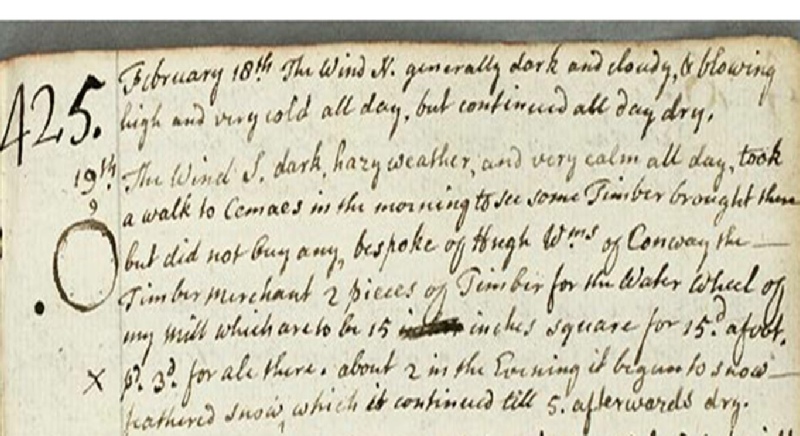 February 18th The Wind N. generally dark and cloudy, & blowing
425. high and very cold all day, but continued all day dry.
19th. The Wind S. dark, hazy weather, and very calm all day, took
a walk to Cemaes in the morning to see some Timber brought there
but did not buy any, bespoke of Hugh Wms of Conway the —
Timber Merchant 2 pieces of Timber for the Water Wheel of
my Mill which are to be 15 inches square for 15d. a foot.
x pd. 3d. for ale there. about 2 in the Evening it begun to snow —
feathered snow, which it continued till 5. afterwards dry.